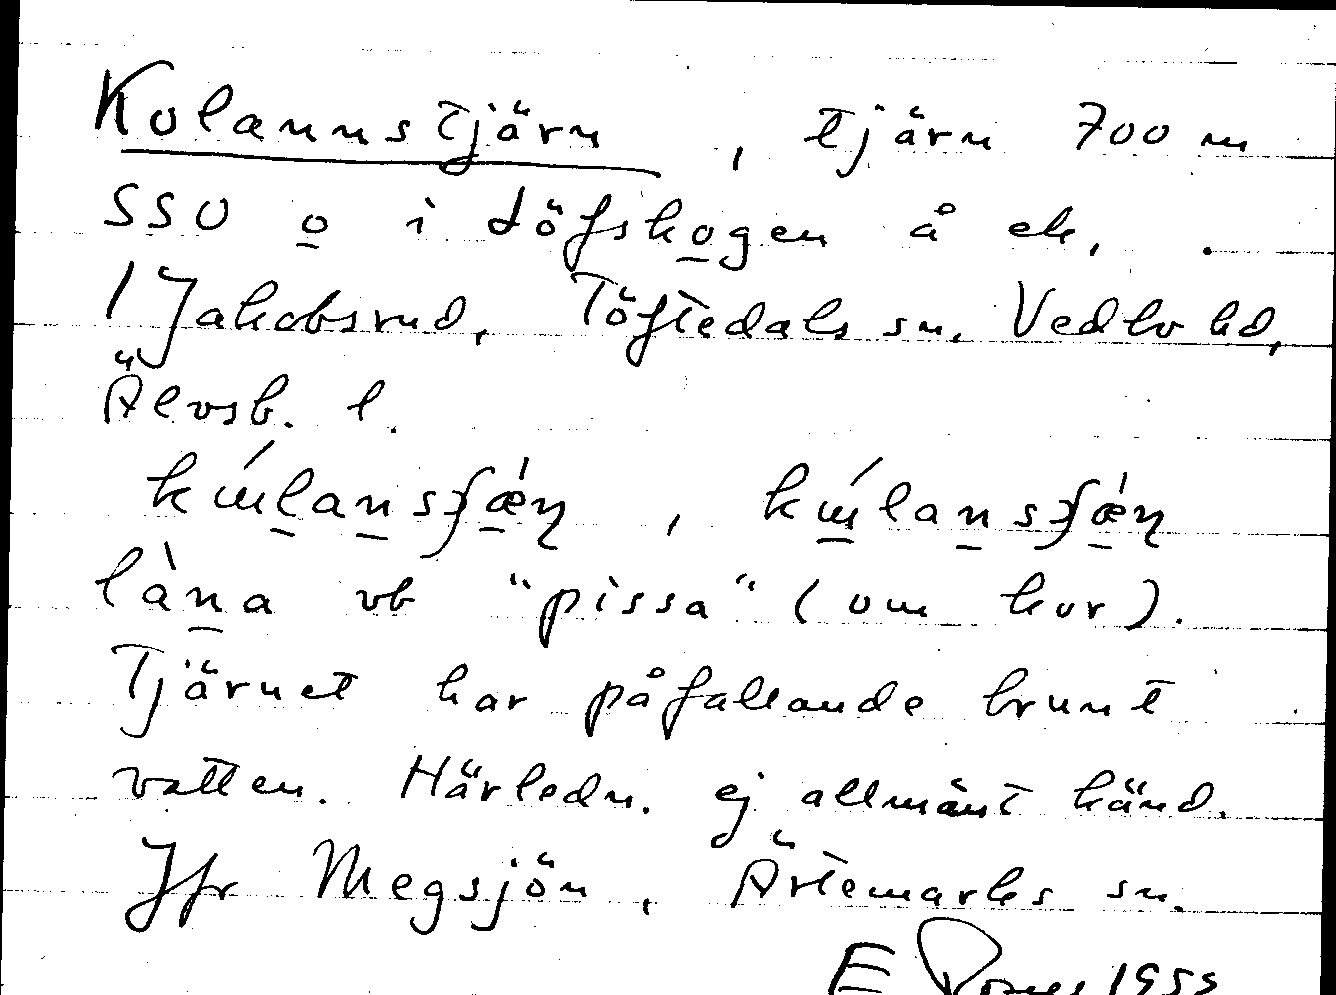 Kolannstjärn, tjärn 700 m
SSO o i Löfskogen å ek.
1 Jakobsrud, Töftedals sn. Vedbo hd,
Älvsb. l.
kɯ́lansʃǽɳ, kɯ́lansʃǽɳ
làna vb "pissa" (om kor).
Tjärnet har påfallande brunt
vatten. Härledn. ej allmänt känd.
Jfr Megsjön, Ärtemarks sn.
E 1955